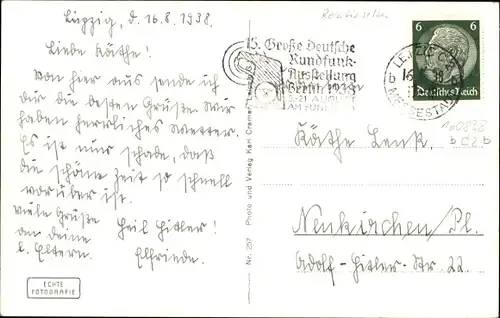 Leipzig, d. 16.8.1938.
Liebe Käthe!
Von hier aus sende ich
dir die besten Grüße. Wir
haben herrliches Wetter.
Es ist nur schade, daß
die schöne Zeit so schnell
vorüber ist.
viele Grüße Heil Hitler!
an deine
l. Eltern. Elfriede.
ECHTE
FOTOGRAFIE
Nr. 257 Photo und Verlag Karl Cramer, Leipzig
15. Große Deutsche
Rundfunk-
Ausstellung
Berlin 1938
5.-21. AUGUST
AM FUNKTURM
6 6
Deutsches Reich
LEIPZIG C2
b b
MESSESTADT
160838
b C2 b
Käthe Lenk,
Neukirchen/Pl.
Adolf-Hitler-Str. 22.